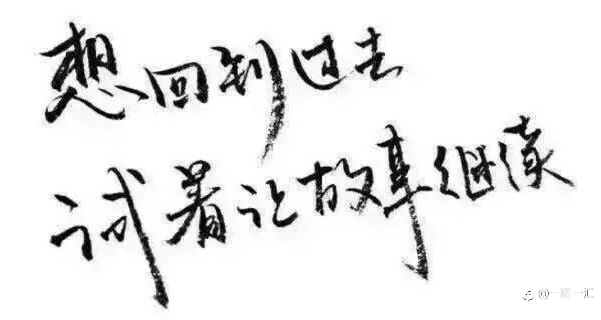 想回到过去
试着让故事继续
@一期一汇